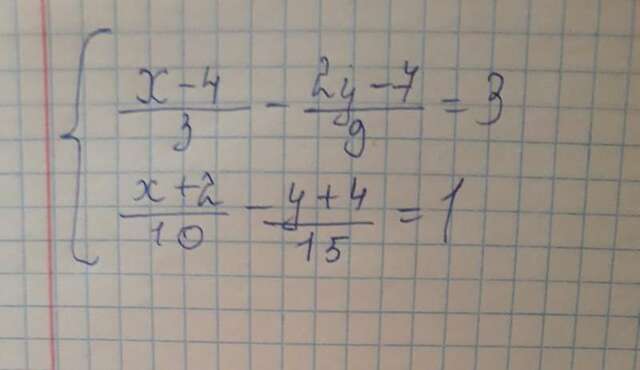 { (x-4)/3 - (2y-7)/9 = 3
(x+2)/10 - (y+4)/15 = 1